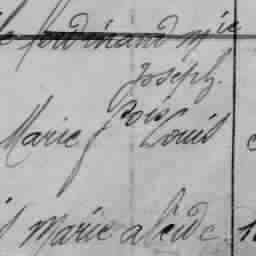 ferdinand Mie
Joséph.
Marie Louis
Marie alcide